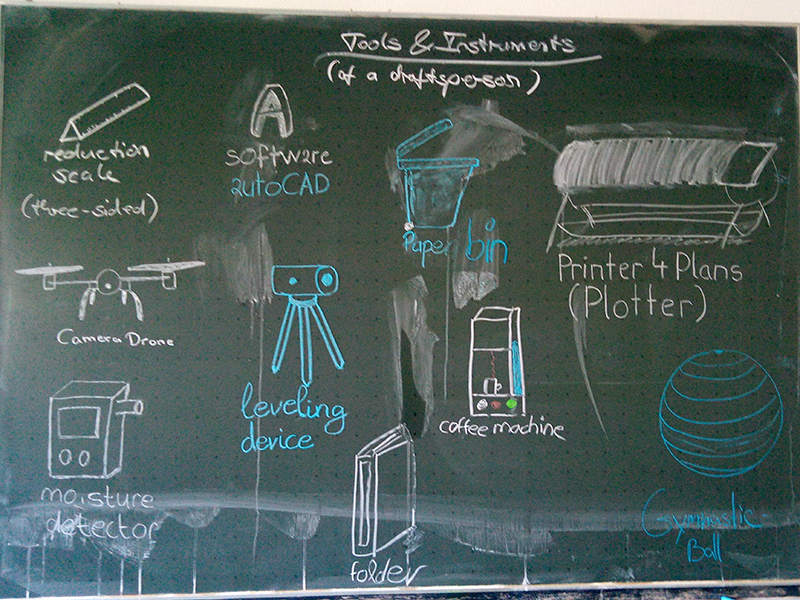 Tools & Instruments
(of a draftsperson)
reduction
scale
(three-sided)
A
software
autoCAD
Paper bin
Printer 4 Plans
(Plotter)
Camera Drone
leveling
device
coffee machine
moisture
detector
folder
Gymnastic-
Ball